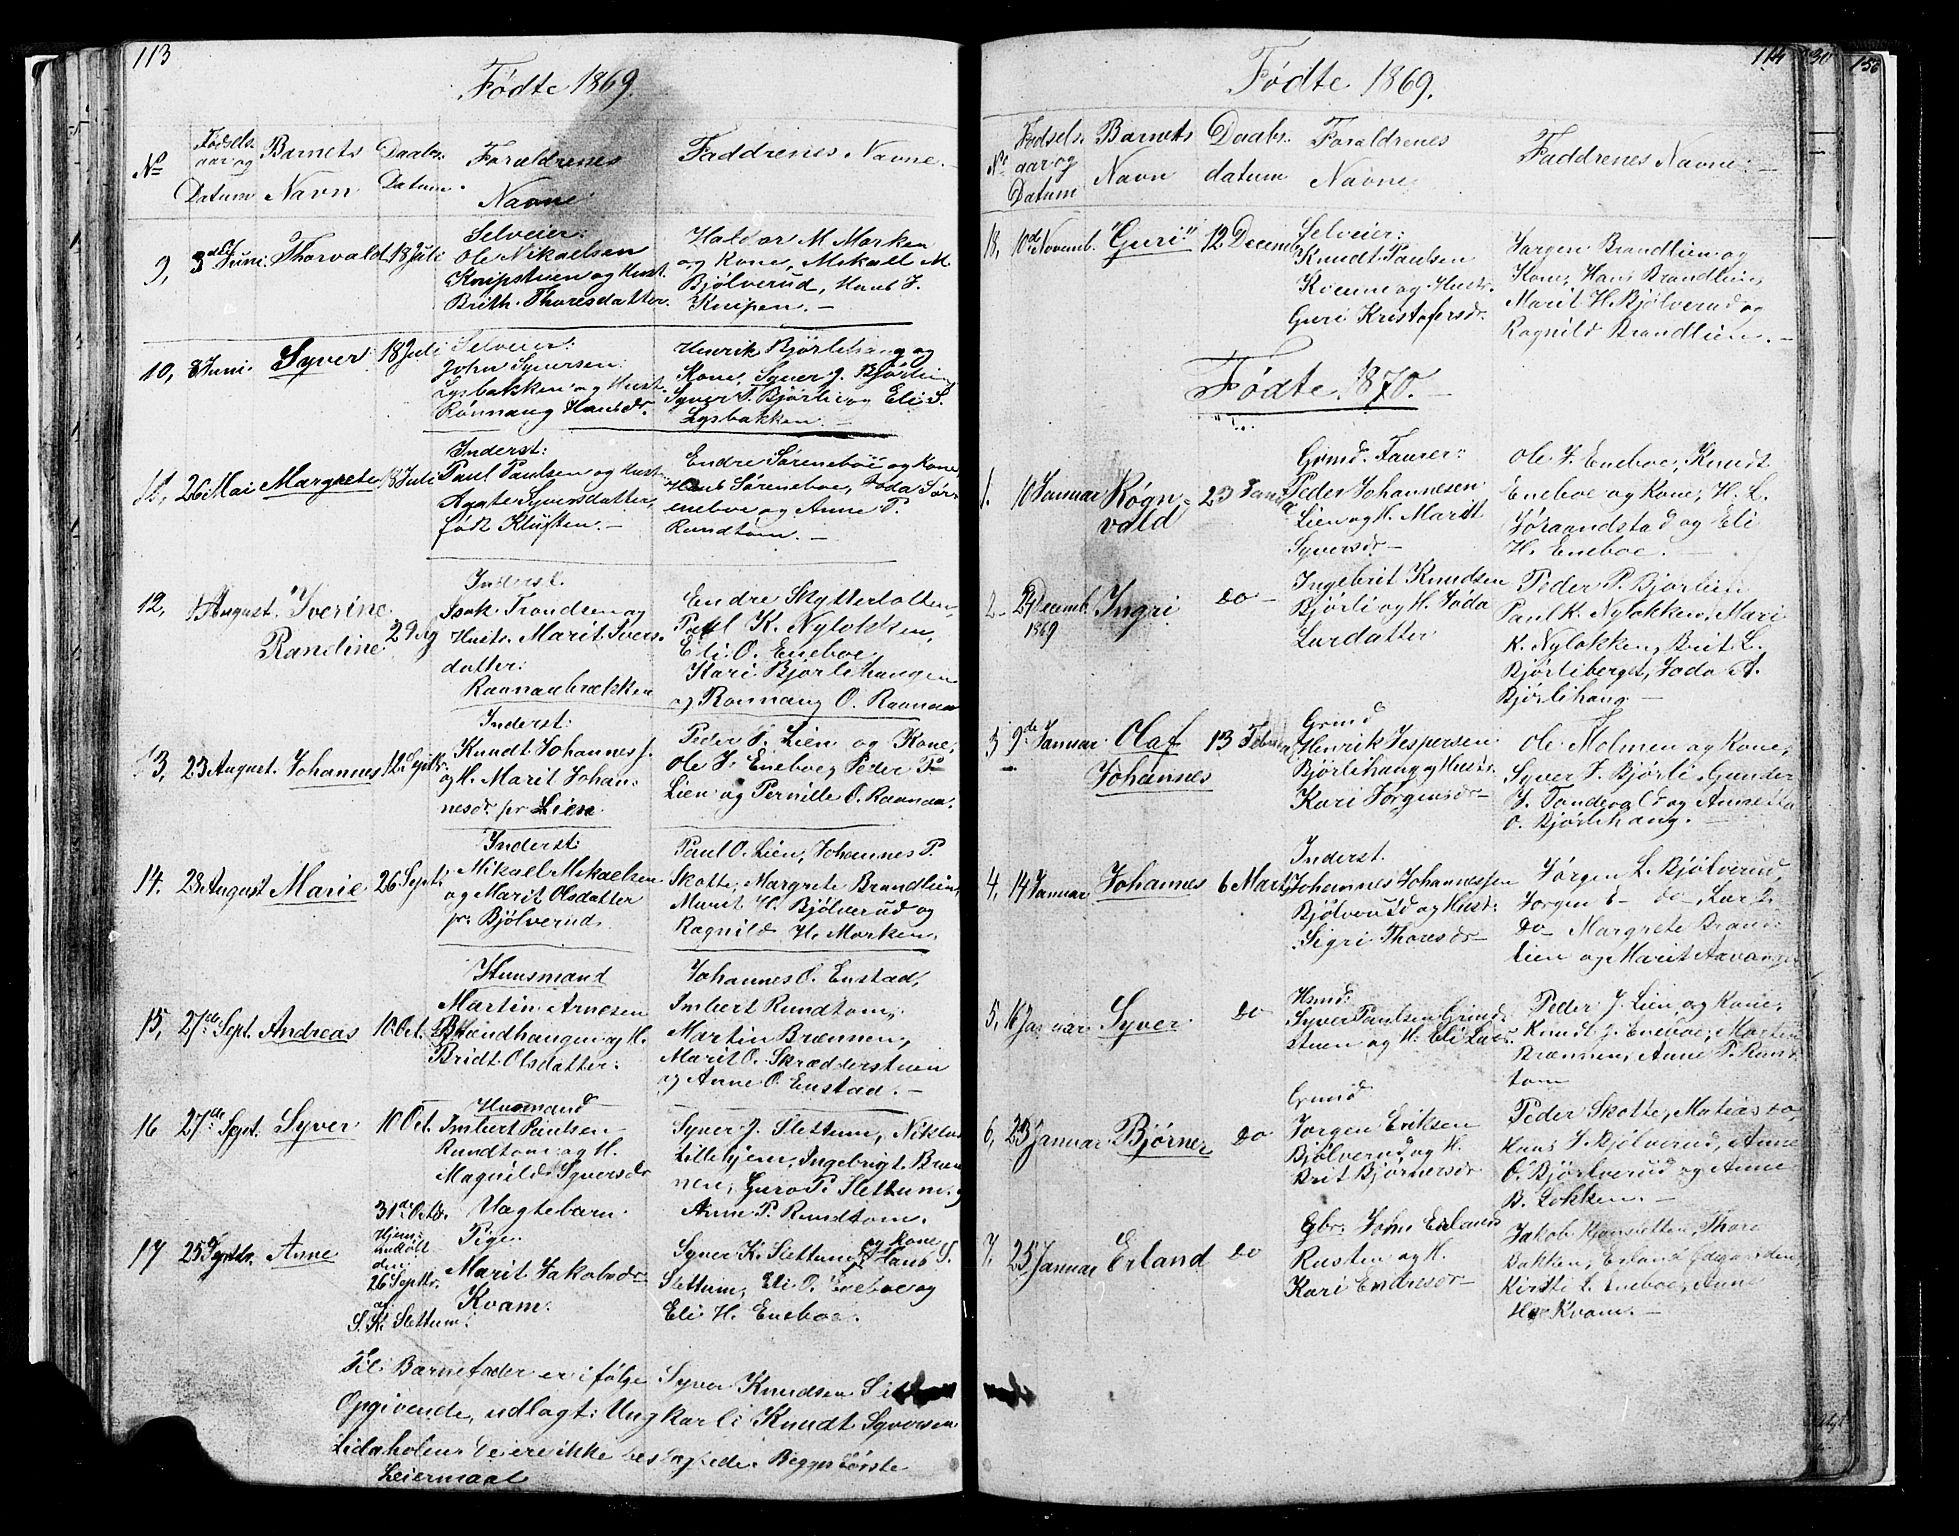 113
Födte 1869.
No
Födsels
aar og
Datum
Barnets
Navn
Daabs
Datum.
Forældrenes
Navne
Faddrenes Navne.
9, 3die Juni. Thorvald 18 Juli
Selveier:
Ole Nikaelsen
Knipstuen og Hust.
Brith Thoresdatter.
Haldor M. Morken
og Kone, Mikaell M.
Bjölverud, Hans J.
Knipen. —
10, 8 Juni. Syver 18 Juli
Selveier:
John Syversen
Lysbakken og Hust.
Rönnaug Hansdr.
Henrik Björlihaug og
Kone, Syver J. Björli
Syver T. Björli og Eli S.
Lysbakken. —
11, 26 Mai Margrete 18 Juli
Inderst:
Paul Paulsen og Hust
Agate Syversdatter,
født Kluften. —
Endre Söreneboe og Kone
Hans Söreneboe, Jöda Sör-
eneboe og Anne P.
Rundtom. —
12, August. Iverine
Randine 29 Aug
Inderst.
Isak Trondsen og
Hustr. Marit Ivers-
datter:
Raanaabrækken
Endre Skyttertotten,
Paul K. Nylökken,
Eli O. Eneboe
Kari Björlihaugen
og Ronnaug O. Raanaa
13, 23 August. Johannes 12 Septbr.
Inderst:
Knudt Johannes f.
og H. Marit Johan-
nesdr. pr Lien
Peder J. Lien og Kone,
Ole J. Eneboe, Peder P.
Lien og Pernille O. Raanaa.
14. 28 August Marie 26 Sept:
Inderst:
Mikaell Mikaelsen
og Marit Olsdatter
pr. Bjölverud.
Paul O. Lien, Johannes P.
Skotte, Margrete Brandlien,
Marit H. Bjölverud og
Ragnild H. Morken.
15, 27de Sept. Andreas 10 Oct.
Huusmand
Martin Arnesen
Brandhaugen og H.
Bridt Olsdatter:
Johannes O. Enstad,
Imbert Rundtom,
Martin Brænnen,
Marit O. Skrædderstuen
og Anne O. Enstad. —
16 27de Sept. Syver 10 Oct.
Husmand
Imbert Paulsen
Rundtom og H.
Magnild Syversdr
Syver J. Slettum, Niklas
Lillehjem, Ingebrigt Bræn
nen, Guro P. Slettum, og
Anne P. Rundtom.
17 25 Septbr. Anne
31te Octbr.
Hjem-
medöbt
den
26 Septbr.
af
S. K. Slettum.
Uægtebarn.
Pige
Marit Jakobsdr
Kvam.
Syver K. Slettum og Kone, Hans S.
Slettum, Eli O. Eneboe og
Eli H. Eneboe.
Til Barnefader er i følge Syver Knudsen
Opgivende, udlagt: Ungkarl i Knudt Syversen
ikke beslægtede. Begges første
Leiermaal
114
Födte 1869.
No
Födsels
aar og
Datum
Barnets
Navn
Daabs-
datum
Forældrenes
Navne
Faddrenes Navne: —
18, 10de Novemb. "Guri" 12 Decemb
Selveier:
Knudt Paulsen
Kvenne og Hustr.
Guri Kristofersdr.
Jørgen Brandlien og
Kone, Hans Brandlien,
Marit H. Bjölverud og
Ragnild Brandlien. —
Födte 1870. —
1. 10 Januar Rögn-
vald 23 Janua
Grmd. Faurer:
Peder Johannesen
Lien og H. Marit
Syversdr —
Ole J. Eneboe, Knudt
Eneboe og Kone, H. L.
Joraandstad og Eli
H. Eneboe. —
2 — 29 Decemb.
1869
Ingri do —
Ingebrit Knudsen
Björli og H. Jöda
Larsdatter
Peder P. Björlien
Paul K. Nylökken, Mari
K. Nylökken, Brit L.
Björliberget, Joda A.
Björlihaug —
3 9de Januar Olaf
Johannes 13 Februa
Grmd
Henrik Jespersen
Björlihaug og Hustr.
Kari Jörgensdr —
Ole Molmen og Kone,
Syver J. Björli, Gunder
J. Tandevold og Annetta
O. Björlihaug. —
4, 14 Januar Johannes 6 Marts
Inderst.
Johannes Johannessen
Bjölverud og Hust:
Sigri Thoresdr —
Jörgen L. Bjölverud,
Jorgen E — do —, Lar 2
do — Margrete Brand-
lien og Marit
5, 16 Januar Syver do
Hsmd:
Syver Paulsen Grind-
stuen og H. Eli Lars.
Peder J. Lien og Kone,
Knudt J. Eneboe, Morten
Brænnen, Anne P. Rund
tom
6, 23 Januar Bjørner do
Grmd
Jorgen Eriksen
Bjölverud og H.
Brit Bjørnersdr
Peder Skotte, Matias do,
Hans J. Bjölverud, Anne
O. Bjölverud og Anne
B. Lökken. —
7, 25 Januar Erland do
Gbr. John Erlands
Rusten og H.
Kari Endresdr —
Jakob Hjemsletten, Thore
Bakken, Erland Edgaarden,
Kirsti L. Eneboe, Anne
H. Kvam. —